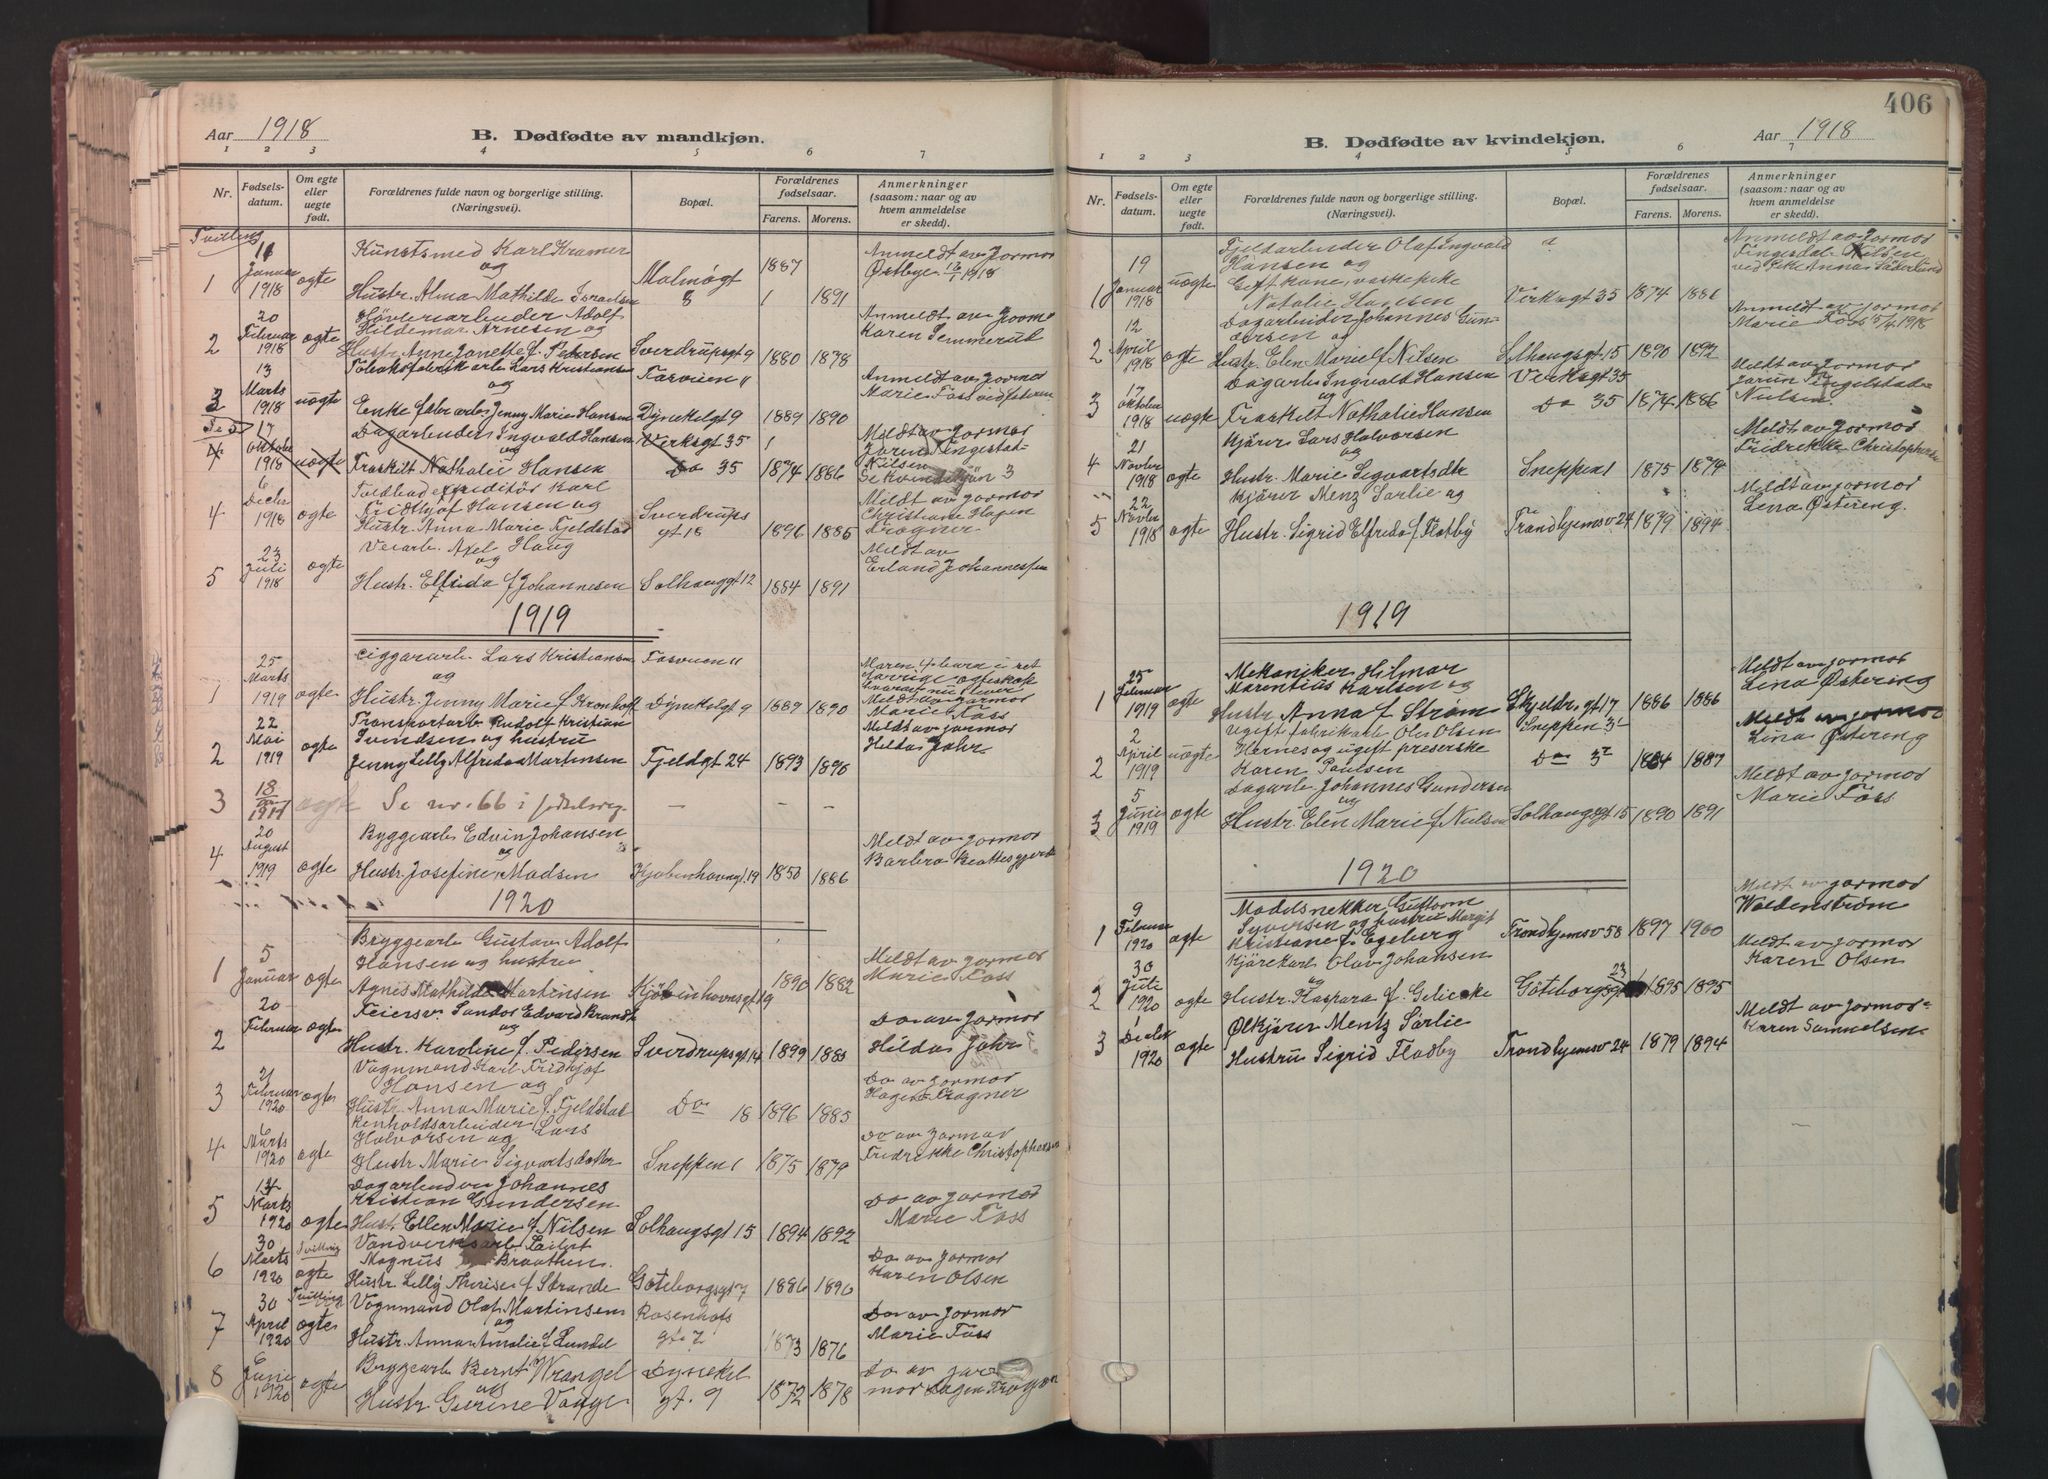 406
Aar 1918
B. Dødfødte av mandkjøn.
1 2 3 4 5 6 7
Nr.
Fødsels-
datum.
Om egte
eller
uegte
født.
Forældrenes fulde navn og borgerlige stilling.
(Næringsvei).
Bopæl.
Forældrenes
fødselsaar.
Farens. Morens.
Anmerkninger
(saasom: naar og av
hvem anmeldelse
er skedd).
Tvilling
Kunstsmed Karl Kramer
og
1 Januar 1918 ægte
Hustr. Alma Mathilde
Malmøgt 8 1887 1891
Anmeldt av Jormor
Østbye
20
Høvleriarbeider Adolf
Hildemar Arnesen og
2 Februar 1918 ægte
Hustr. Anne Janette f. Petersen Sverdrupsgt 9 1880 1878
Anmeldt av Jormor
Karen Semmerud
13
Lars Kristiansen
og
3 Marts 1918 uægte
Enke Jenny Marie Hansen Dynekilgt 9 1889 1890
Anmeldt av Jormor
Marie Foss
17
Dagarbeider Ingvald Hansen Verksgt 35
og
4 Oktober 1918 uægte
Fraskilt Nathalie Hansen Do 35 1874 1886
Meldt av Jormor
Nilsen
Se Kvindekjøn 3
6
Karl
Fridthjof Hansen og
4 Decbr 1918 ægte
Hustr. Anna Marie Fjeldstad
Sverdrups
gt 18 1896 1885
Meldt av Jormor
Christiane Hagen
Fragner
23
Axel Haug
og
5 Juli 1918 ægte
Hustr. Elfrida f. Johannesen Solhauggt 12 1884 1891
Meldt av
Erland Johannessen
1919
25
Ciggararb. Lars Kristiansen
og
1 Marts 1919 ægte
Hustr. Jenny Marie f. Kronholt Dynekilgt 9 1889 1890
Meldt av Jormor
Marie Foss
22
Transportarb Rudolf Kristian
Svendsen og hustru
2 Mai 1919 ægte
Jenny Lelly Alfreda Martinsen Fjeldgt 24 1893 1896
Meldt av Jormor
Hilda Johr
3 18 1919 ægte Se nr. 66 i fødselsreg. — — —
20
Byggearb Edvin Johansen
og
4 August 1919 ægte
Hustr Josefine Madsen Kjøbenhavngt. 19 1850 1886
Meldt av Jormor
Barbro
1920
5
Bryggearb Gustav Adolf
Hansen og hustru
1 Januar ægte
Agnes Mathilde Martinsen Kjøbenhavnsgt 19 1890 1882
Meldt av Jormor
Marie Foss
20
Feiersv. Sandor Edvard Brandt
og
2 Februar ægte
Hustr. Karoline f. Pedersen Sverdrupsgt 14 1899 1883
Do av Jormor
Hilda Johr
21
Vognmand Karl Fridhjof
Hansen og
3 Februar 1920 ægte
Hustr. Anna Marie f. Fjeldstad Do 18 1896 1885
Do av Jormor
Hagen Fragner
Renholdsarbeider Lars
Halvorsen og
4 Marts 1920 ægte
Hustr Marie Sigvartsdatter Sneppen 1 1875 1879
Do av Jormor
Fridrikke Christophersen
Dagarbeider Johannes
Kristian Gundersen
5 Marts 1920 ægte
Hustr Ellen Marie f. Nilsen Solhaugsgt 15 1894 1892
Do av Jormor
Marie Foss
30 Tvilling
Magnus Braathen.
6 Marts 1920 ægte
Hustr. Lelly Therise f. Strande Gøteborgsgt 7 1886 1890
Do av Jormor
Karen Olsen
30 Tvilling
Vognmand Olaf Martinsen
og
7 April 1920 ægte
Hustr. Anna Amalie f. Lundel
Rosenhofs
gt. 7 1873 1876
Do av Jormor
Marie Foss
Bryggearb Bernt Wrangel
og
8 Juni 1920 ægte
Hustr.
Dynekil
gt. 9 1872 1878
Do av Jor
mor Hagen Fragner
B. Dødfødte av kvindekjøn.
Aar 1918
1 2 3 4 5 6 7
Nr.
Fødsels-
datum.
Om egte
eller
uegte
født.
Forældrenes fulde navn og borgerlige stilling.
(Næringsvei).
Bopæl.
Forældrenes
fødselsaar.
Farens. Morens.
Anmerkninger
(saasom: naar og av
hvem anmeldelse
er skedd).
19
Fjeldarbeider Olaf Ingvald
Hansen og
1 Januar 1918 uægte
Gift kone, vaskepike
Natalie Hansen Verksgt 35 1874 1886
Anmeldt av Jormor
12
Dagarbeider Johannes Gun-
dersen og
2 April 1918 ægte
Hustr. Elen Marie f Nilsen Solhaugsgt 15 1890 1892
Anmeldt av Jormor
Marie Foss 15/4 1918
17
Dagarb Ingvald Hansen Verksgt 35
og
3 Oktober 1918 uægte
Fraskilt Nathalie Hansen Do 35 1874 1886
Meldt av Jormor
Nielsen
21
Kjører Lars Halvorsen
og
4 Novbr 1918 ægte
Hustr. Marie Sigvartsdtr Sneppen 1 1875 1874
Meldt av Jormor
Fridrikke Christophersen
22
Kjører Menz Sørlie og
5 Novbr 1918 ægte
Hustr. Sigrid Elfreda f. Flatby Trondhjemsv 24 1879 1894
Meldt av Jormor
Lina Østereng.
1919
25
Mekaniker Hilmar
Marentius Karlsen og
1 Februar 1919 ægte
Hustr. Anna f. Strøm Skjeldr. gt 17 1886 1886
Meldt av Jormor
Lina Østering
2
Ugift fabrikarb Ole Olsen Sneppen 3
Hernes og ugift preserske
2 April 1919 uægte
Karen Paulsen Do 3 1884 1887
Meldt av Jormor
Lina Østereng
5
Dagarb Johannes Gundersen
og
3 Juni 1919 ægte
Hustr. Elen Marie f. Nilsen Solhaugsgt 15 1890 1891
Meldt av Jormor
Marie Foss
1920
9
Modelsnekker Guttorm
Syversen og hustru Margit
1 Februar 1920 ægte
Kristiane f. Egeberg Trondhjemsv 58 1897 1900
Meldt av Jormor
Waldenstrøm
30
Kjørekarl Olav Johansen
og
2 Juli 1920 ægte
Hustr. Kaspara f. Gulicke Gøteborgsgt 23 1895 1895
Meldt av Jormor
Karen Olsen
1
Ølkjører Mentz Sørlie
3 Decbr 1920 ægte
Hustru Sigrid Fladby Trondhjemsv 24 1879 1894
Meldt av Jormor
Karen Samuelsen